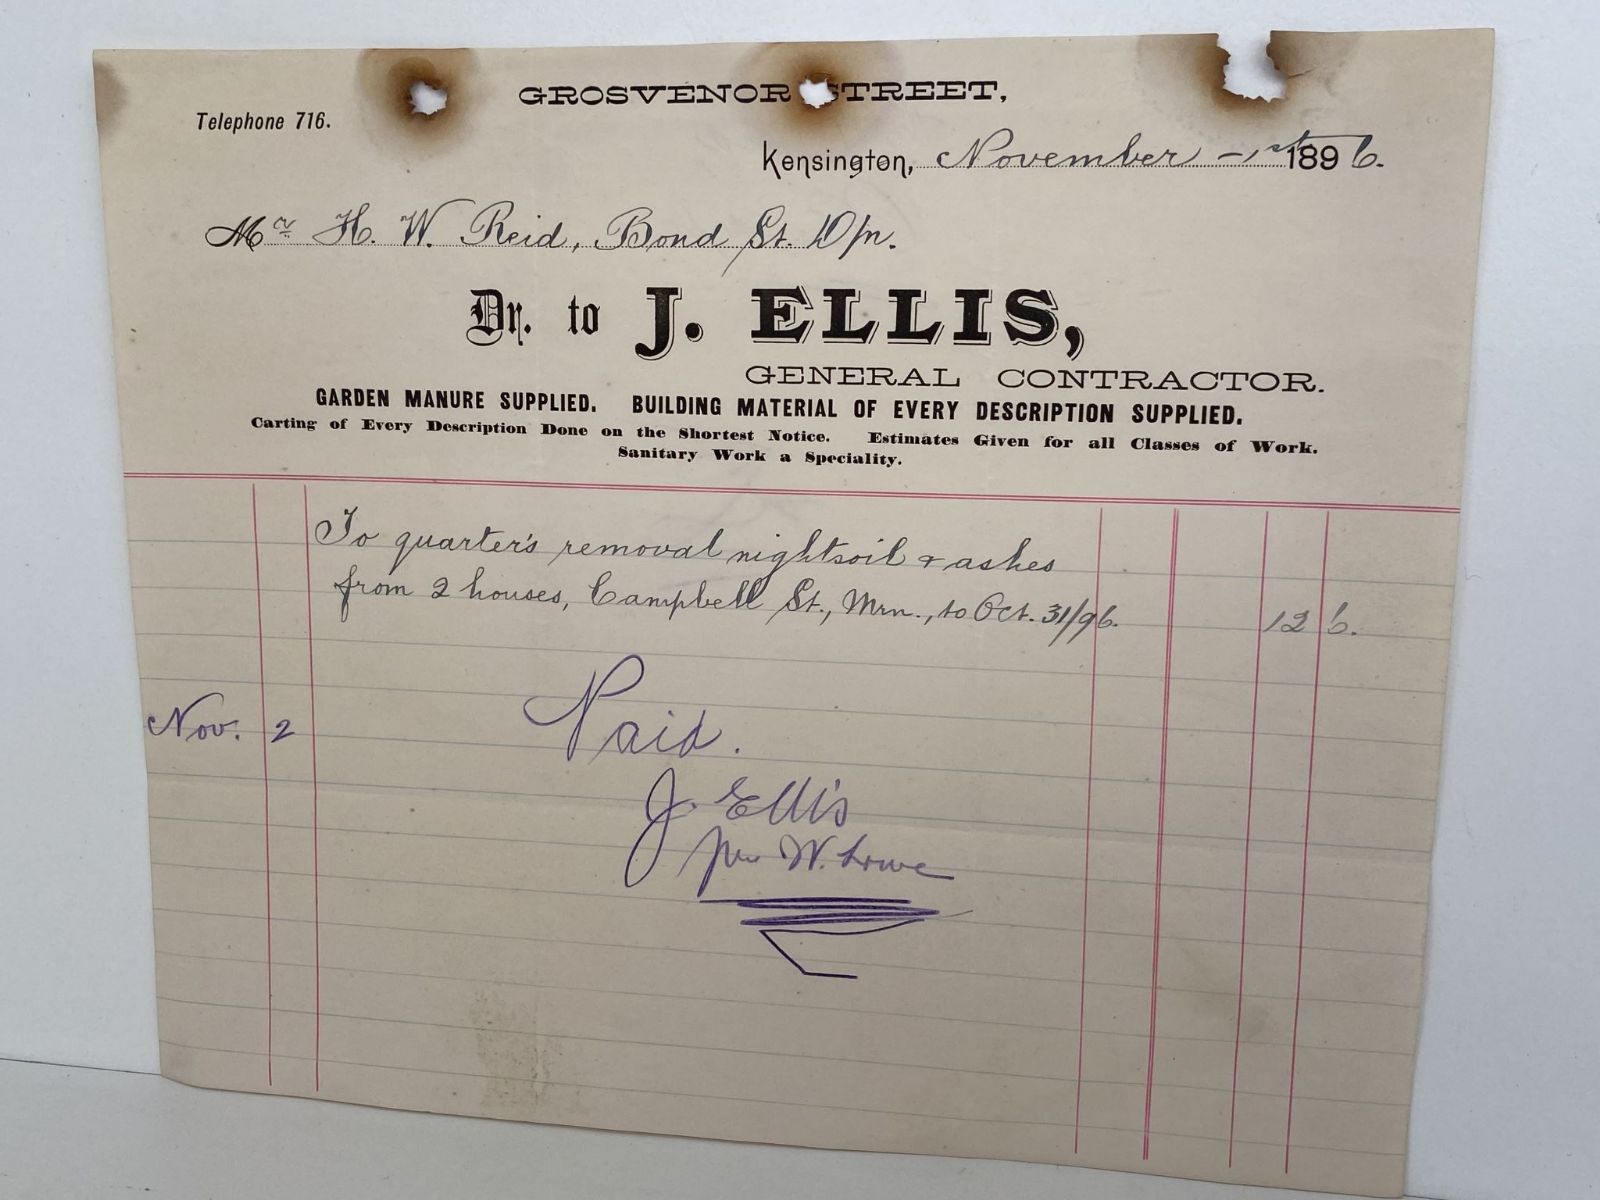 GROSVENOR STREET,
Telephone 716.
Kensington, November 1st 1896.
Mr H. W. Reid, Bond St. D/n.
Dr. to J. ELLIS,
GENERAL CONTRACTOR.
GARDEN MANURE SUPPLIED. BUILDING MATERIAL OF EVERY DESCRIPTION SUPPLIED.
Carting of Every Description Done on the Shortest Notice. Estimates Given for all Classes of Work.
Sanitary Work a Speciality.
To quarter's removal nightsoil & ashes
from 2 houses, Campbell St., Mrn., to Oct. 31/96. 12 6.
Nov. 2 Paid.
J Ellis
per W. Lowe